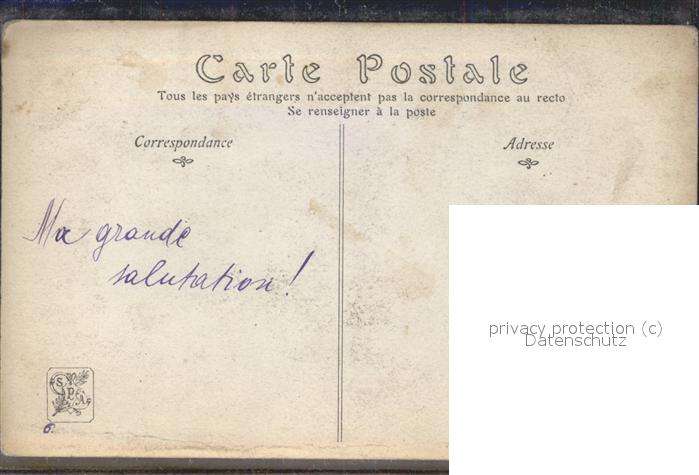 Carte Postale
Tous les pays étrangers n'acceptent pas la correspondance au recto
Se renseigner à la poste
Correspondance
Adresse
Ma grande
salutation!
privacy protection (c)
Datenschutz
6.